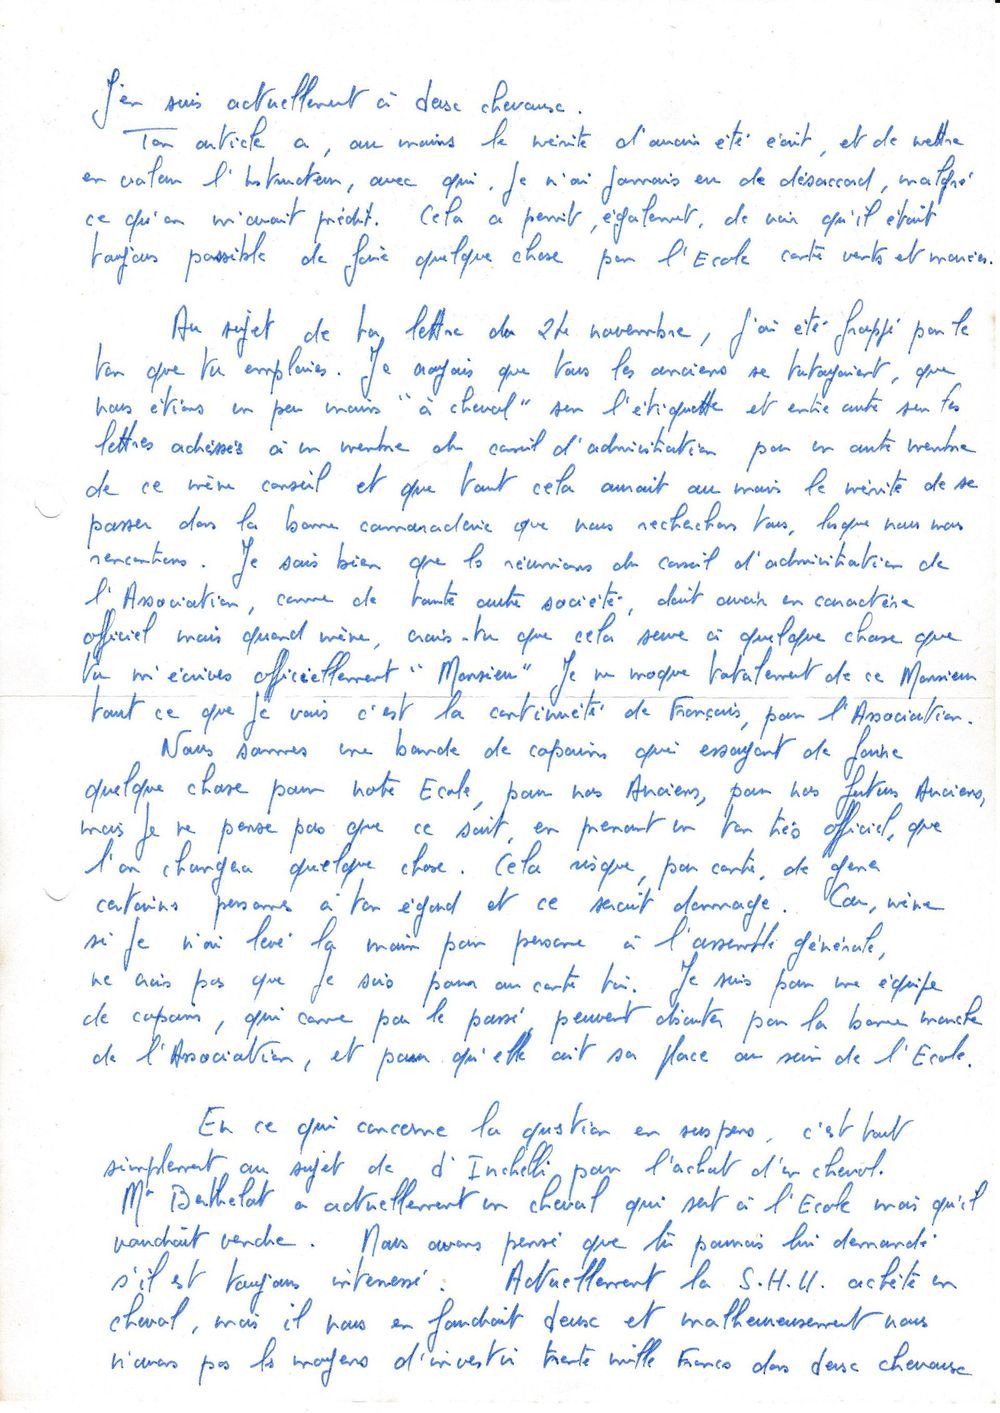 J'en suis actuellement à deux chevaux.
Ton article a, au moins le mérite d'avoir été écrit, et de mettre
en valeur l'instructeur, avec qui, je n'ai jamais eu de désaccord, malgré
ce qu'on m'avait prédit. Cela a permit, également, de voir qu'il était
toujours possible de faire quelque chose par l'Ecole contre vents et marées.
Au sujet de ta lettre du 24 novembre, j'ai été frappé par le
ton que tu emploies. Je croyais que tous les anciens se tutoyaient, que
nous étions un peu moins "à cheval" sur l'étiquette et entre autre sur les
lettres adressées à un membre du conseil d'administration par un autre membre
de ce même conseil et que tout cela aurait au moins le mérite de se
passer dans la bonne camaraderie que nous recherchons tous, lorsque nous nous
rencontrons. Je sais bien que les réunions du conseil d'administration de
l'Association, comme de toute autre société, doit avoir un caractère
officiel mais quand même, crois-tu que cela serve à quelque chose que
tu m'écrives officiellement "Monsieur" Je me moque totalement de ce Monsieur
tout ce que je vois c'est la continuité de Français, pour l'Association.
Nous sommes une bande de copains qui essayent de faire
quelque chose pour notre Ecole, pour nos Anciens, pour nos futurs Anciens,
mais je ne pense pas que ce soit, en prenant un ton très officiel, que
l'on changera quelque chose. Cela risque, par contre, de gener
certaines personnes à ton égard et ce serait dommage. Car, même
si je n'ai levé la main pour personne à l'assemblé générale,
ne crois pas que je sois pour ou contre toi. Je suis pour une équipe
de copains, qui comme par le passé, peuvent discuter pour la bonne marche
de l'Association, et pour qu'elle ait sa place au sein de l'Ecole.
En ce qui concerne la question en suspens, c'est tout
simplement au sujet de d'Inchelli pour l'achat d'un cheval.
Mr Berthelot a actuellement un cheval qui sert à l'Ecole mais qu'il
voudrait vendre. Nous avons pensé que tu pourrais lui demandé
s'il est toujours interessé. Actuellement la S.H.U. achète un
cheval, mais il nous en faudrait deux et malheureusement nous
n'avons pas les moyens d'investir trente mille Francs dans deux chevaux